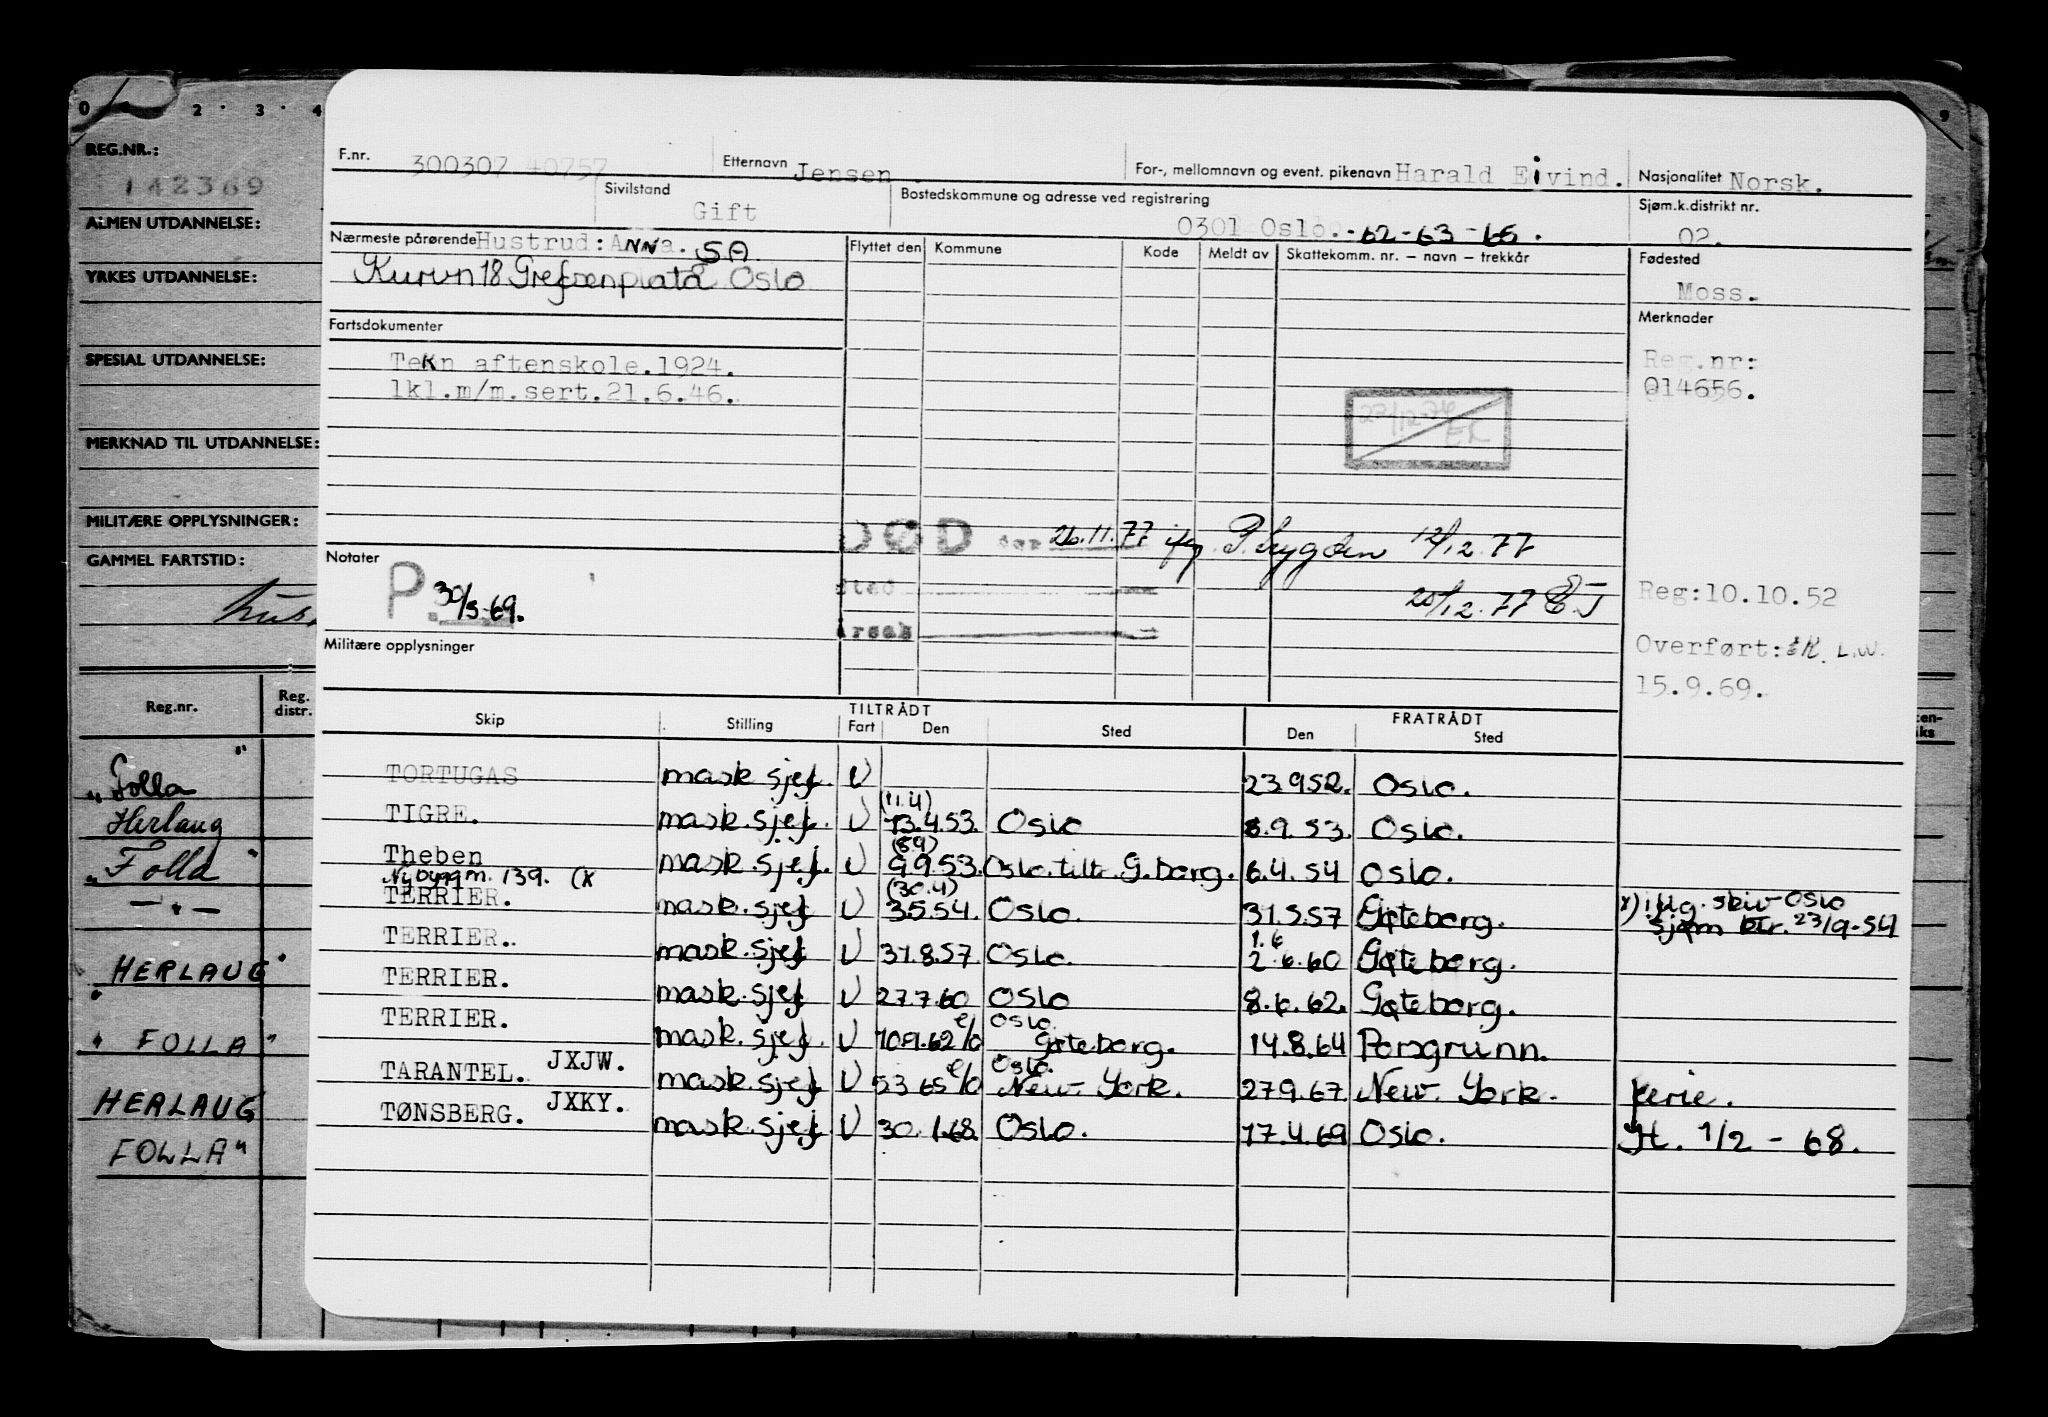 0 2 · 3 · 4
9
REG.NR.:
142369
ALMEN UTDANNELSE:
YRKES UTDANNELSE:
SPESIAL UTDANNELSE:
MERKNAD TIL UTDANNELSE:
MILITÆRE OPPLYSNINGER:
GAMMEL FARTSTID:
Reg.nr.
Reg. distr.
"Folla"
Herlaug
"Folla"
— " —
HERLAUG"
" FOLLA"
HERLAUG
FOLLA"
F.nr. 300307 40757
Etternavn Jensen.
For-, mellomnavn og event. pikenavn Harald Eivind.
Nasjonalitet Norsk.
Sivilstand Gift
Bostedskommune og adresse ved registrering
0301 Oslo. -62-63-65.
Sjøm.k.distrikt nr.
02.
Nærmeste pårørende Hustrud: Anna. SA
Kurvn 18 Grefsenplatå Oslo
Flyttet den
Kommune
Kode
Meldt av
Skattekomm. nr. – navn – trekkår
Fødested
Moss.
Fartsdokumenter
Tekn aftenskole.1924.
1kl.m/m.sert.21.6.46.
Merknader
Reg.nr:
014656.
23/12-74
EK
DØD den 26.11.77 ifg. P.trygden 12/12.77
Sted
20/12.77 EJ
Årsak
Notater
P. 30/5-69.
Reg:10.10.52
Militære opplysninger
Overført: EK. L.W.
15.9.69.
Skip
Stilling
TILTRÅDT
Fart
Den
Sted
FRATRÅDT
Den
Sted
TORTUGAS mask.sjef. U 23.9.52. Oslo.
(11.4)
TIGRE. mask.sjef. U 13.4.53. Oslo 8.9.53. Oslo.
(8.9)
Theben mask.sjef. U 9.9.53. Oslo. tilt. G.borg. 6.4.54 Oslo.
Nybygg m. 139. (x
(30.4)
TERRIER. mask.sjef U 3.5.54. Oslo. 31.5.57 Gøteborg. x) iflg. skiv Oslo
sjøm ktr. 23/9-54
1.6
TERRIER. mask.sjef U 31.8.57. Oslo. 2.6.60 Gøteborg.
TERRIER. mask.sjef U 27.7.60 Oslo 8.6.62. Gøteborg.
TERRIER. mask.sjef. U 10.9.62 e/o Oslo. Gøteborg. 14.8.64 Porsgrunn.
TARANTEL. JXJW. mask.sjef U 5.3.65 e/o Oslo. New York. 27.9.67 New York. ferie.
TØNSBERG. JXKY. mask.sjef U 30.1.68. Oslo. 17.4.69 Oslo. H. 1/2 - 68.